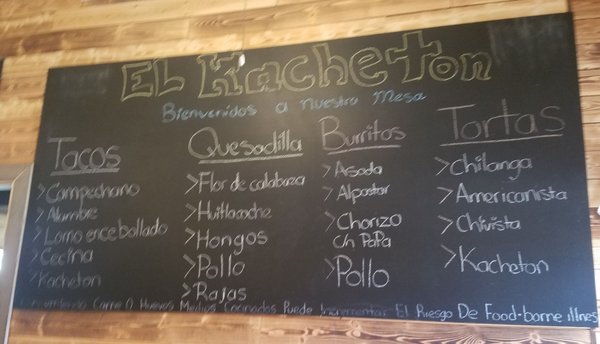 EL Kacheton
Bienvenidos a Nuestra Mesa
Tacos
>Campechano
>Alambre
>Lomo encebollado
>Cecina
>Kacheton
Quesadilla
>Flor de calabaza
>Huitlacoche
>Hongos
>Pollo
>Rajas
Burritos
>Asada
>Alpastor
>Chorizo
Ch PaPa
>Pollo
Tortas
>Chilanga
>Americanista
>Chivista
>Kacheton
Carne O Huevos Medios Cocinados Puede Incrementar El Riesgo De Food-borne illnes